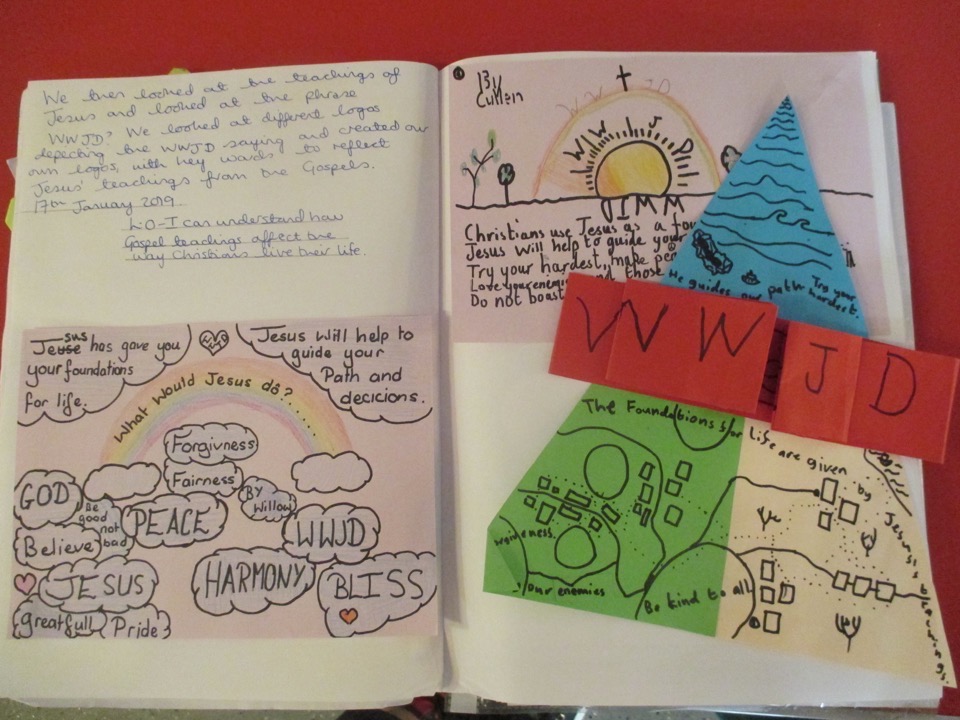 We then looked at the teachings of
Jesus and looked at the phrase
WWJD? We looked at different logos
depicting the WWJD saying and created our
own logos, with key words to reflect
Jesus' teachings from the Gospels.
17th January 2019
LO-I can understand how
Gospel teachings affect the
way Christians live their life.
Jesus has gave you
your foundations
for life.
Jesus will help to
guide your
Path and
decicions.
What Would Jesus do?......
Forgivness
Fairness
By
Willow
GOD
Be
good
not
bad
PEACE
Believe
WWJD
JESUS
HARMONY
BLISS
greatfull
Pride
By
Cullen
WWJD
WWJD
Christians use Jesus as a
Jesus will help to guide your
Try your hardest, make
Love your
and those
Do not boast
He guides our path
Try your
hardest.
W W J D
The Foundations for Life are given
by
Jesus's teachings.
our enemies
Be kind to all